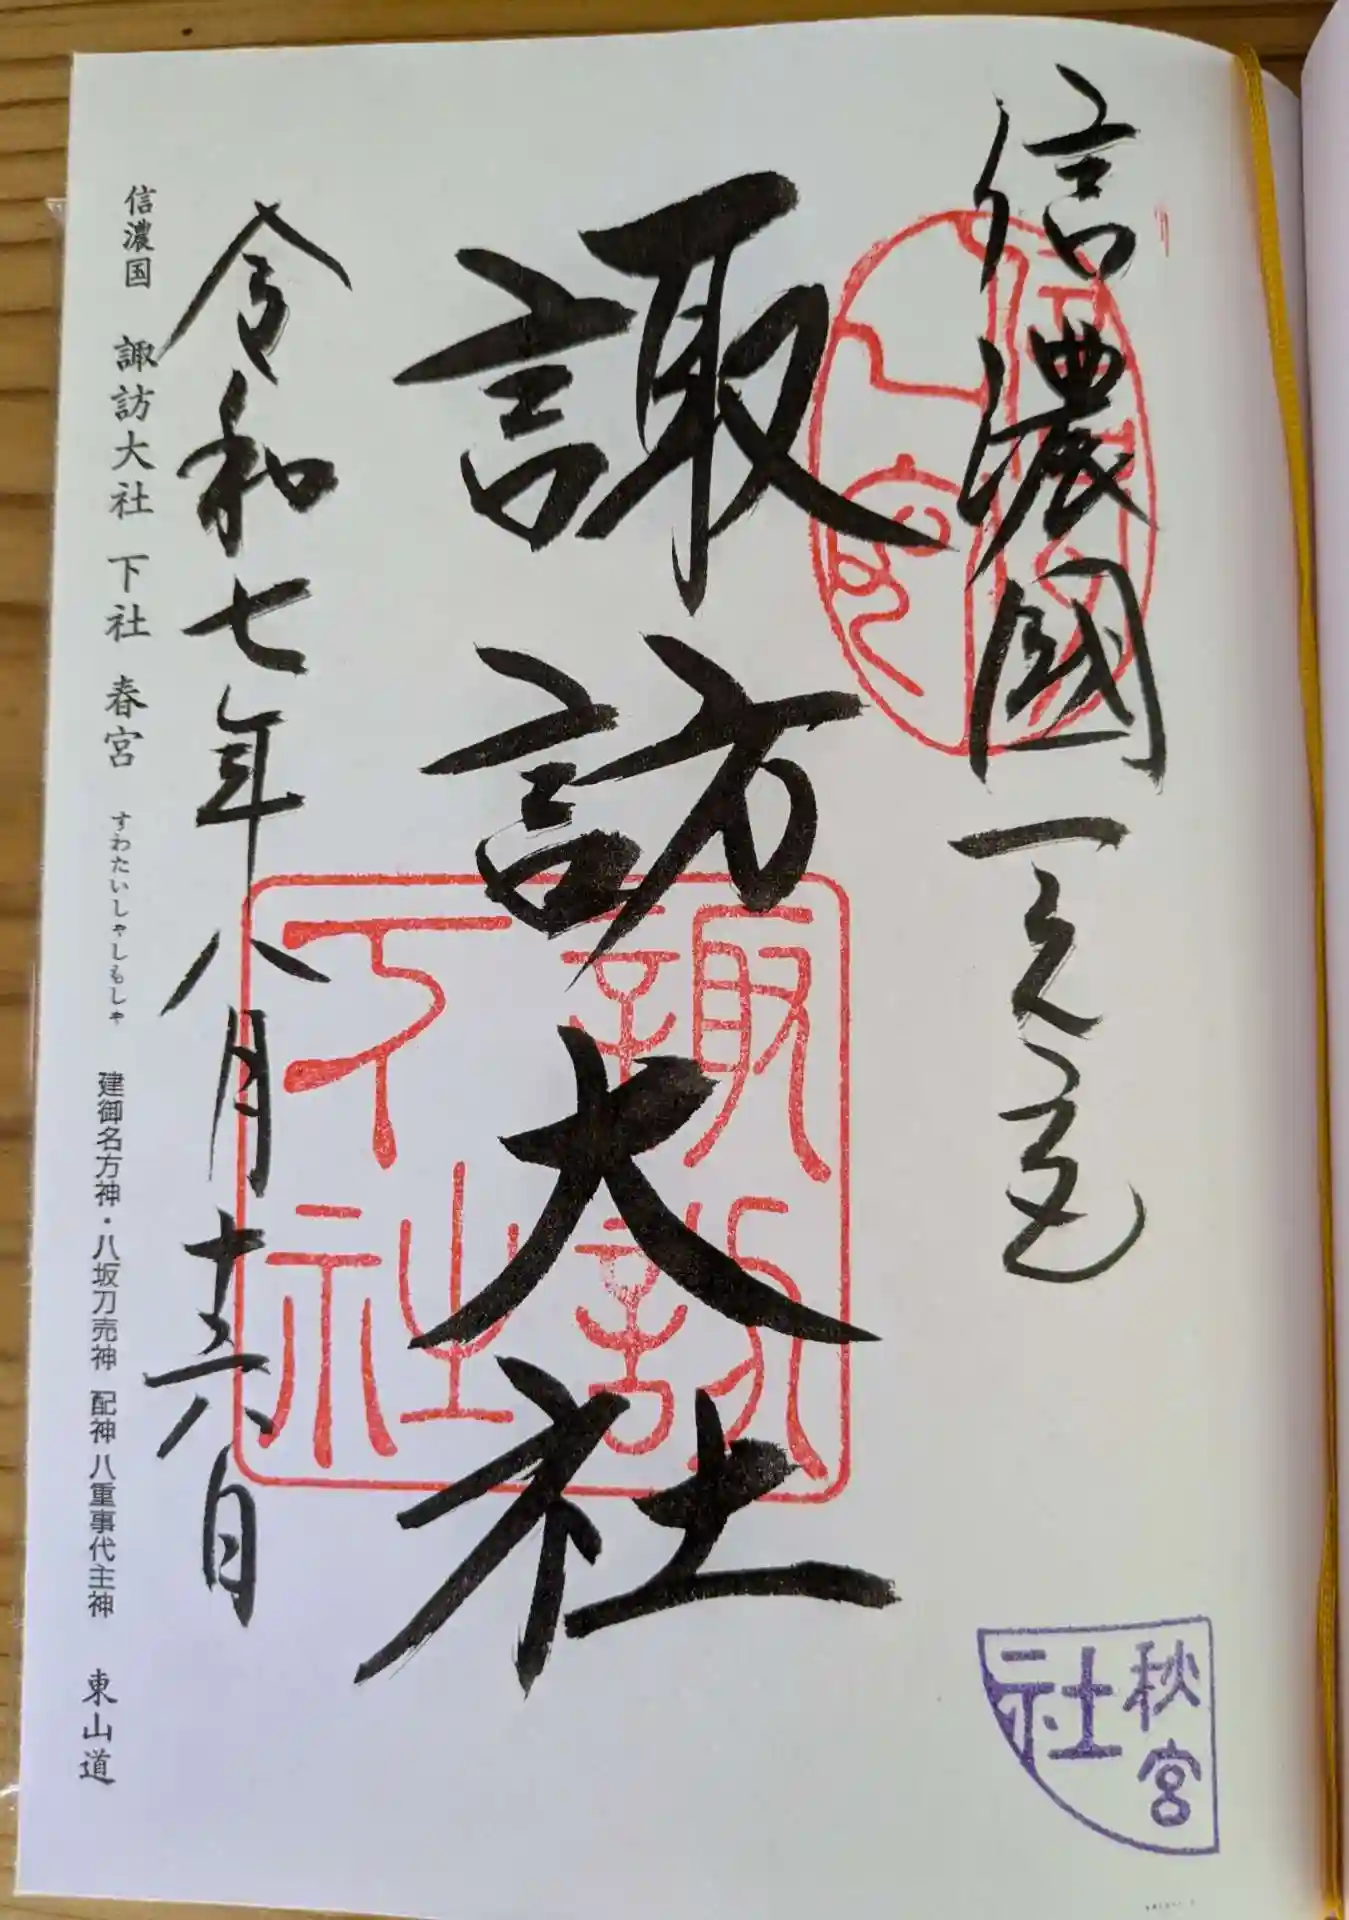 信濃國一之宮
諏訪大社
令和七年八月十六日
信濃国 諏訪大社 下社 春宮 すわたいしゃしもしゃ 建御名方神・八坂刀売神 配神 八重事代主神 東山道
諏訪
下社
秋宮
社